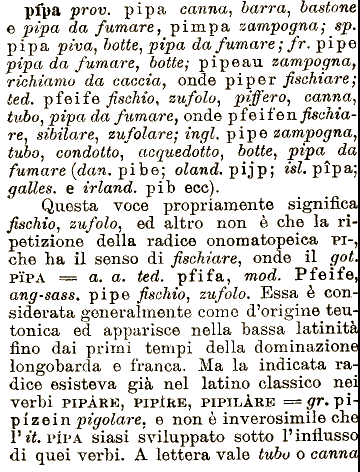 pípa prov. pipa canna, barra, bastone
e pipa da fumare, pimpa zampogna; sp.
pipa piva, botte, pipa da fumare; fr. pipe
pipa da fumare, botte; pipeau zampogna,
richiamo da caccia, onde piper fischiare;
ted. pfeife fischio, zufolo, piffero, canna,
tubo, pipa da fumare, onde pfeifen fischia-
re, sibilare, zufolare; ingl. pipe zampogna,
tubo, condotto, acquedotto, botte, pipa da
fumare (dan. pibe; oland. pijp; isl. pîpa;
galles. e irland. pib ecc).
Questa voce propriamente significa
fischio, zufolo, ed altro non è che la ri-
petizione della radice onomatopeica PI-,
che ha il senso di fischiare, onde il got.
PÏPA = a. a. ted. pfifa, mod. Pfeife,
ang-sass. pipe fischio, zufolo. Essa è con-
siderata generalmente come d'origine teu-
tonica ed apparisce nella bassa latinità
fino dai primi tempi della dominazione
longobarda e franca. Ma la indicata ra-
dice esisteva già nel latino classico nei
verbi PIPÀRE, PIPÍRE, PIPILÀRE = gr. pi-
pízein pigolare, e non è inverosimile che
l'it. PÍPA siasi sviluppato sotto l'influsso
di quei verbi. A lettera vale tubo o canna